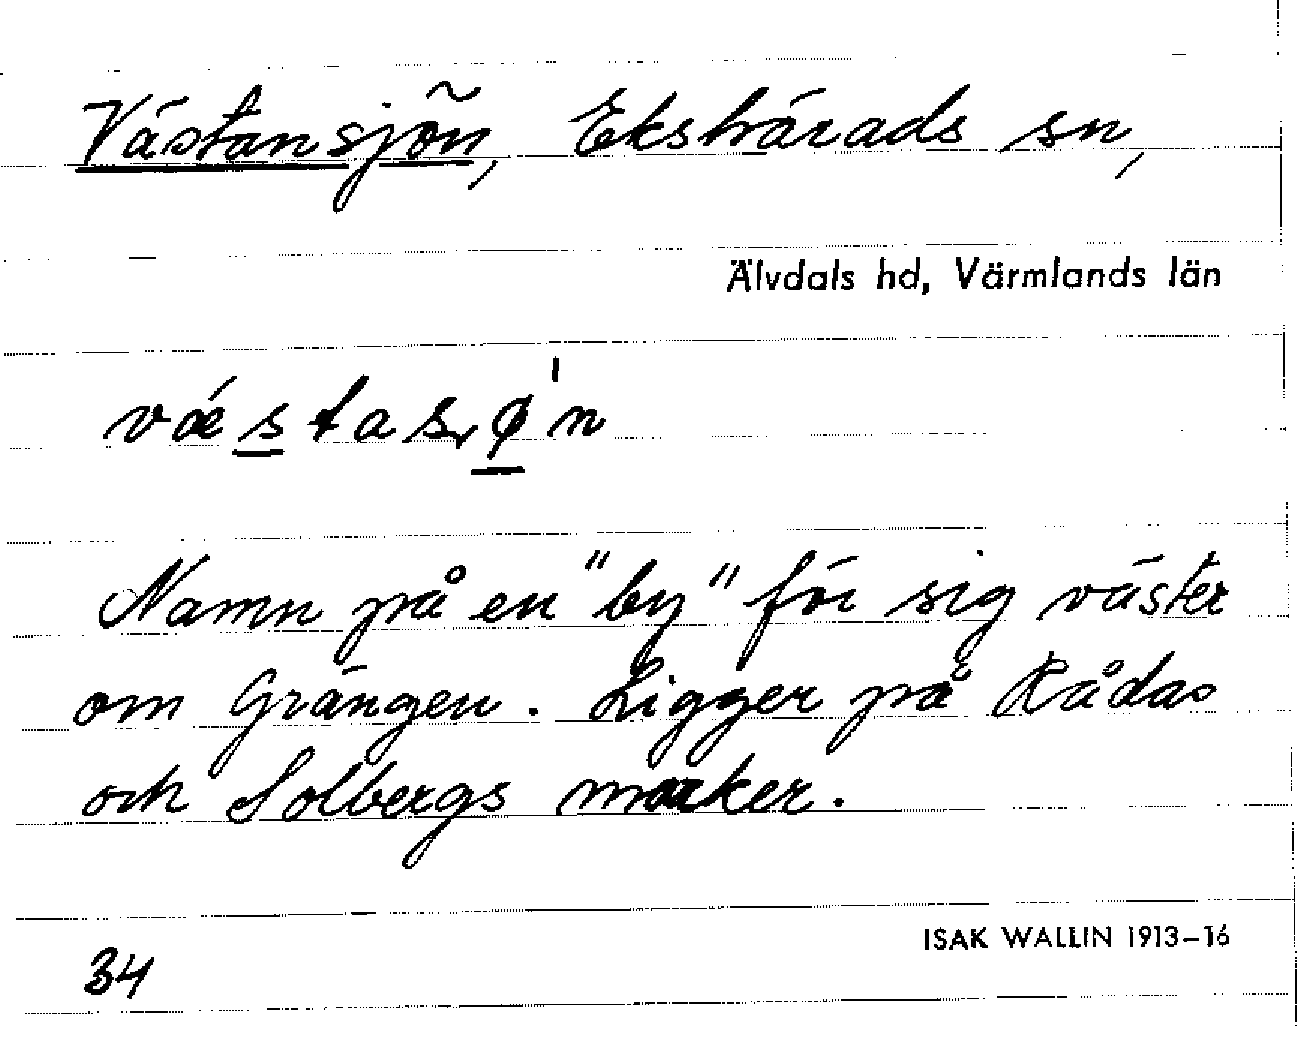 Västansjön, Ekshärads sn,
Älvdals hd, Värmlands län
vǽstasø̀n
Namn på en "by" för sig väster
om Grängen. Ligger på Rådas
och Solbergs marker.
ISAK WALLIN 1913–16
34